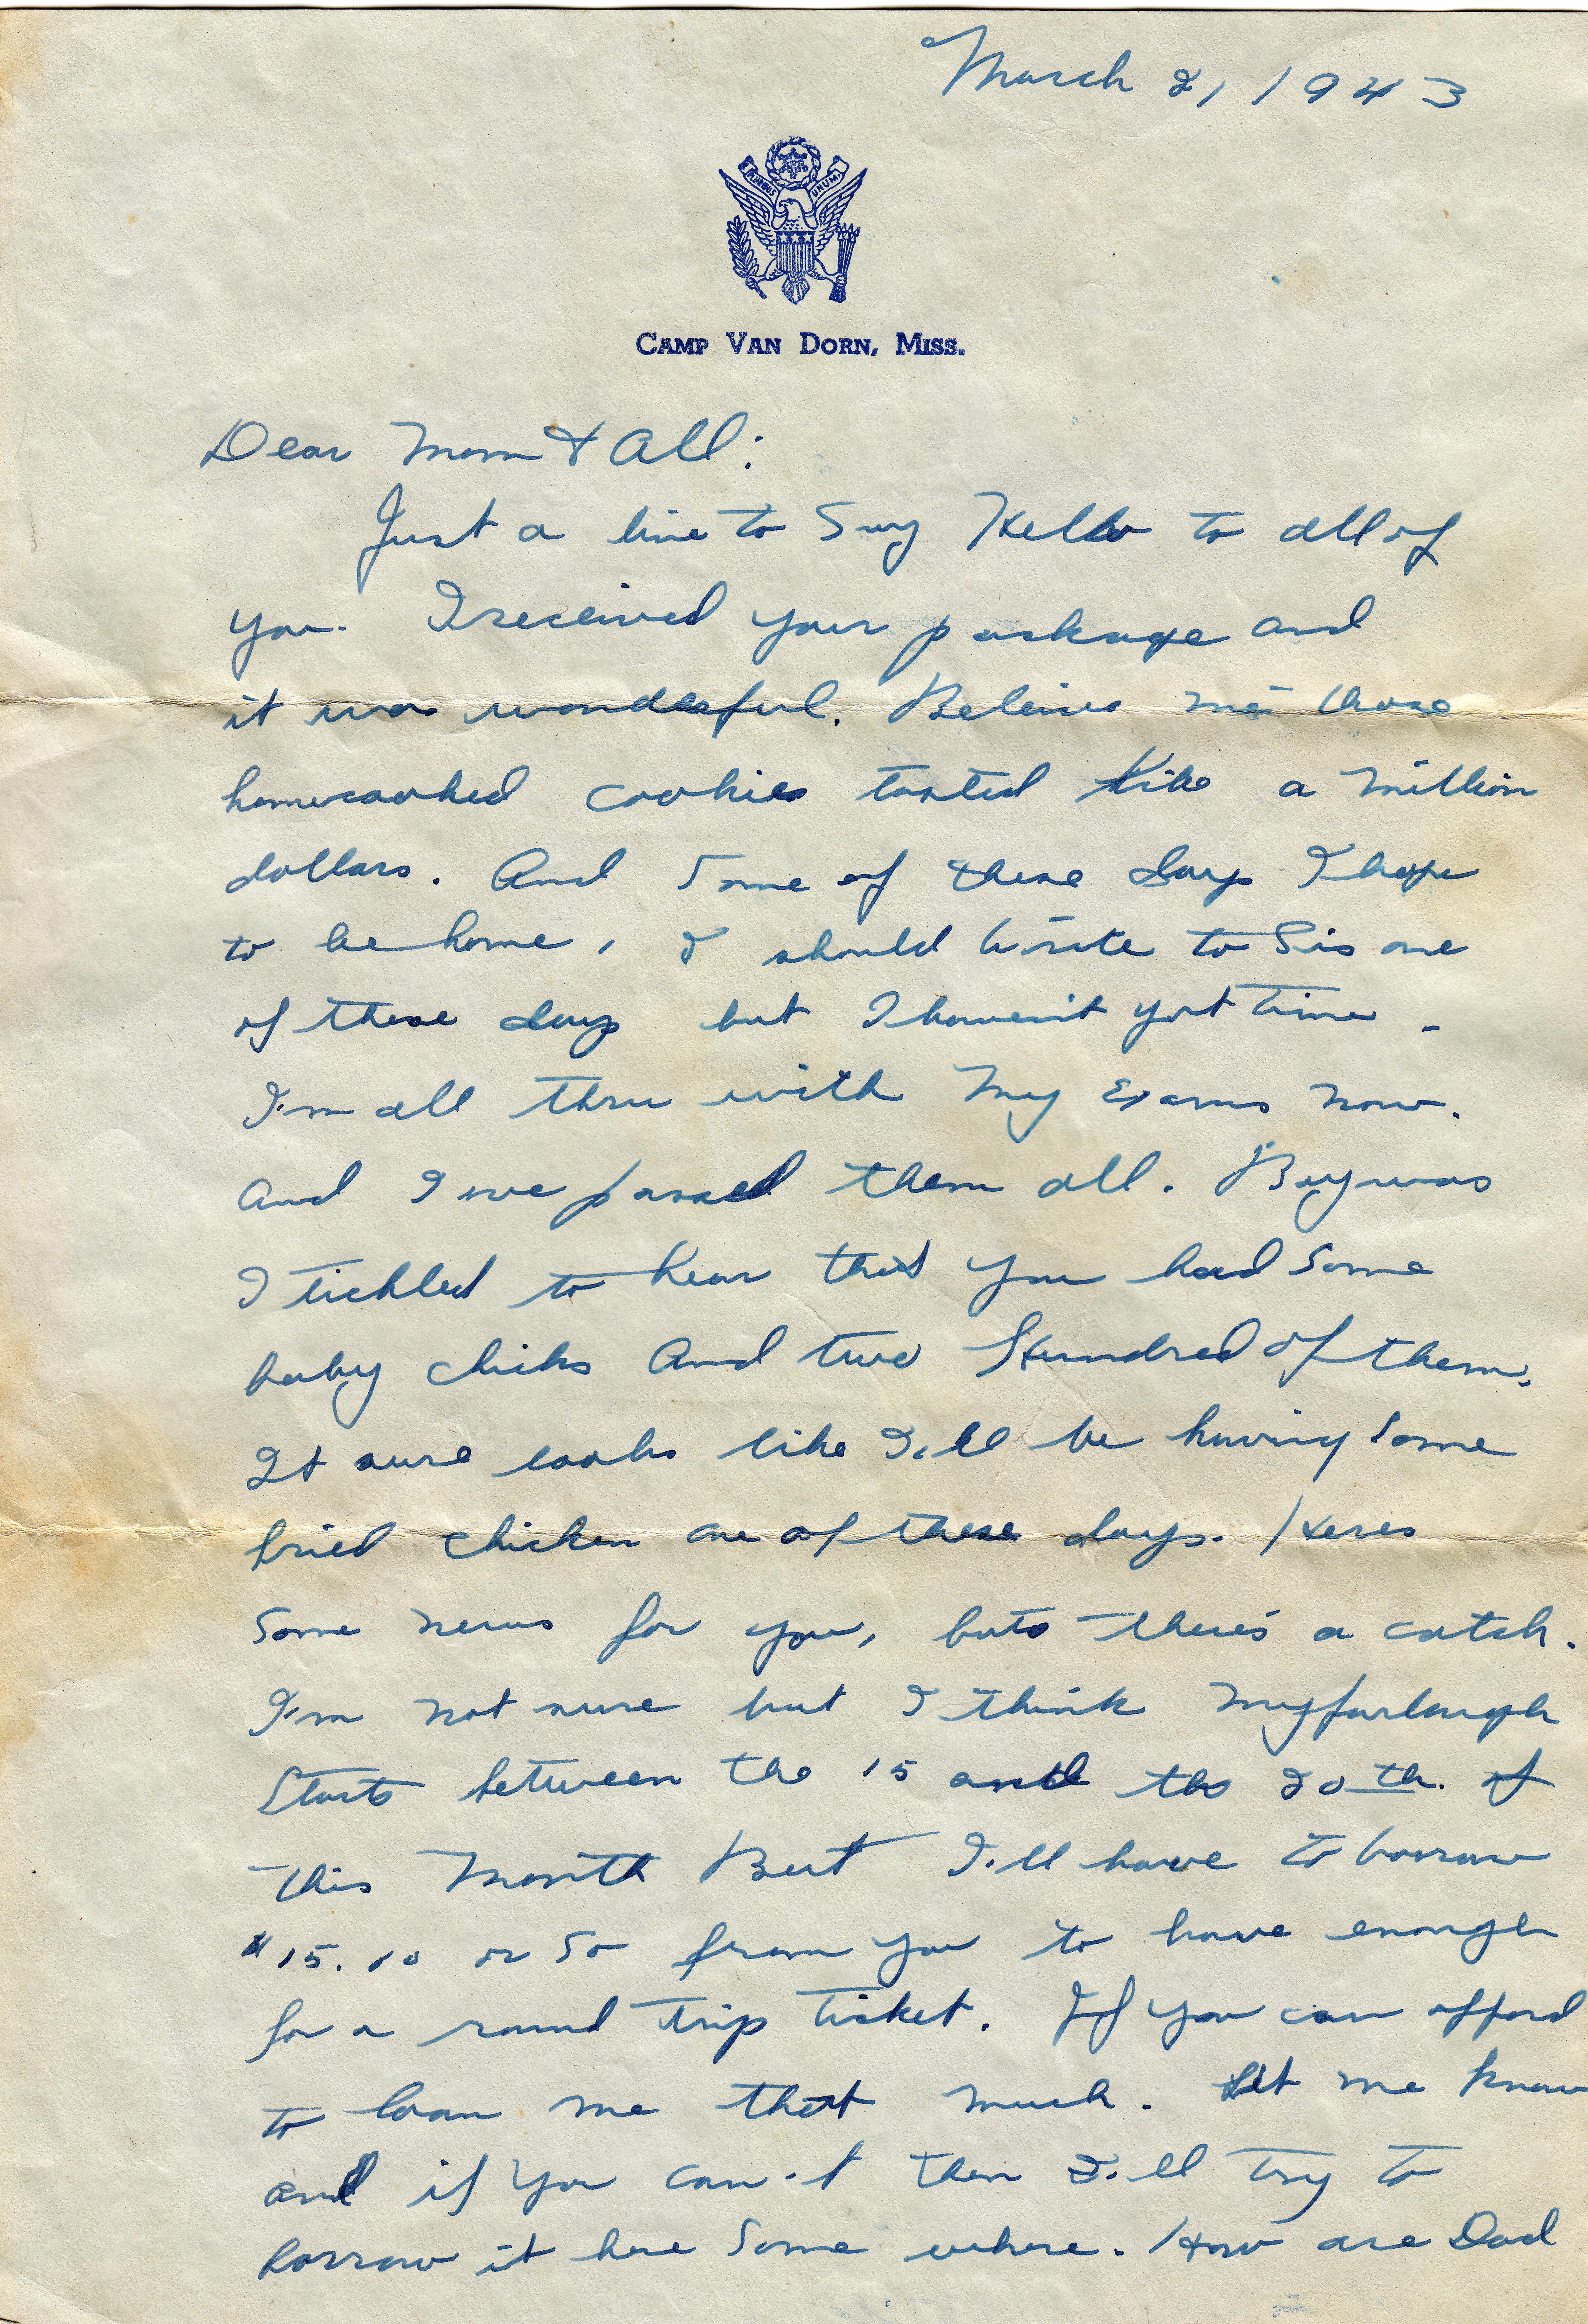 March 2, 1943
PLURIBUS UNUM
CAMP VAN DORN, MISS.
Dear Mom & All:
Just a line to Say Hello to all of
you. I received your package and
it was wonderful. Beleive me those
homecooked cookies tasted like a million
dollars. And Some of these days I hope
to be home, I should write to Sis one
of these days but I haven't got time.
I'm all thru with my Exams now.
and I've passed them all. Boy was
I tickled to hear that you had some
baby chicks And two Hundred of them.
It sure looks like I'll be having Some
fried chicken one of these days. Heres
Some news for you, but there's a catch.
I'm not sure but I think my furlough
Starts between the 15 and the 20th. of
this Month But I'll have to borrow
$15.00 or So from you to have enough
for a round trip ticket. If you can afford
to loan me that much. Let me know
and if you can't then I'll try to
borrow it here Some where. How are Dad